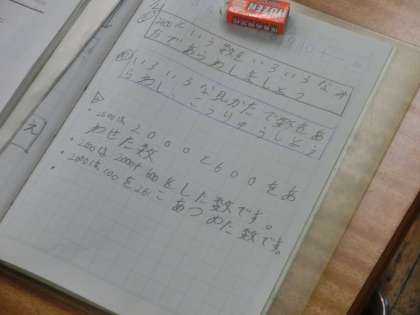 2600という数をいろいろなか
たであらわしましょう
いろいろな見かたで数をあ
らわし、こうりゅうしよう
・2600は2000と600をあ
わせた数
・2600は2000+600をした数です。
・2600は100を26こあつめた数です。